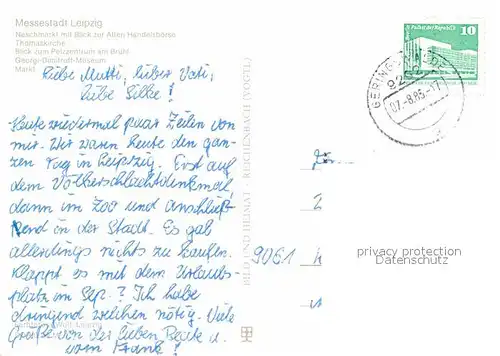 Messestadt Leipzig
Naschmarkt mit Blick zur Alten Handelsbörse
Thomaskirche
Blick zum Pelzzentrum am Brühl
Georgi-Dimitroff-Museum
Markt
Liebe Mutti, lieber Vati,
liebe Silke!
Heute wiedermal paar Zeilen von
mir. Wir waren heute den gan-
zen Tag in Leipzig. Erst auf
dem Völkerschlachtdenkmal,
dann im Zoo und anschließ-
end in der Stadt. Es gab
allerdings nichts zu kaufen.
Klappt es mit dem Urlaubs-
platz im Sep.? Ich habe
dringend welchen nötig. Viele
Grüße von der lieben Beate u.
vom Frank!
BILD UND HEIMAT · REICHENBACH (VOGTL)
10
07.-8.85-17
9061
privacy protection
Datenschutz